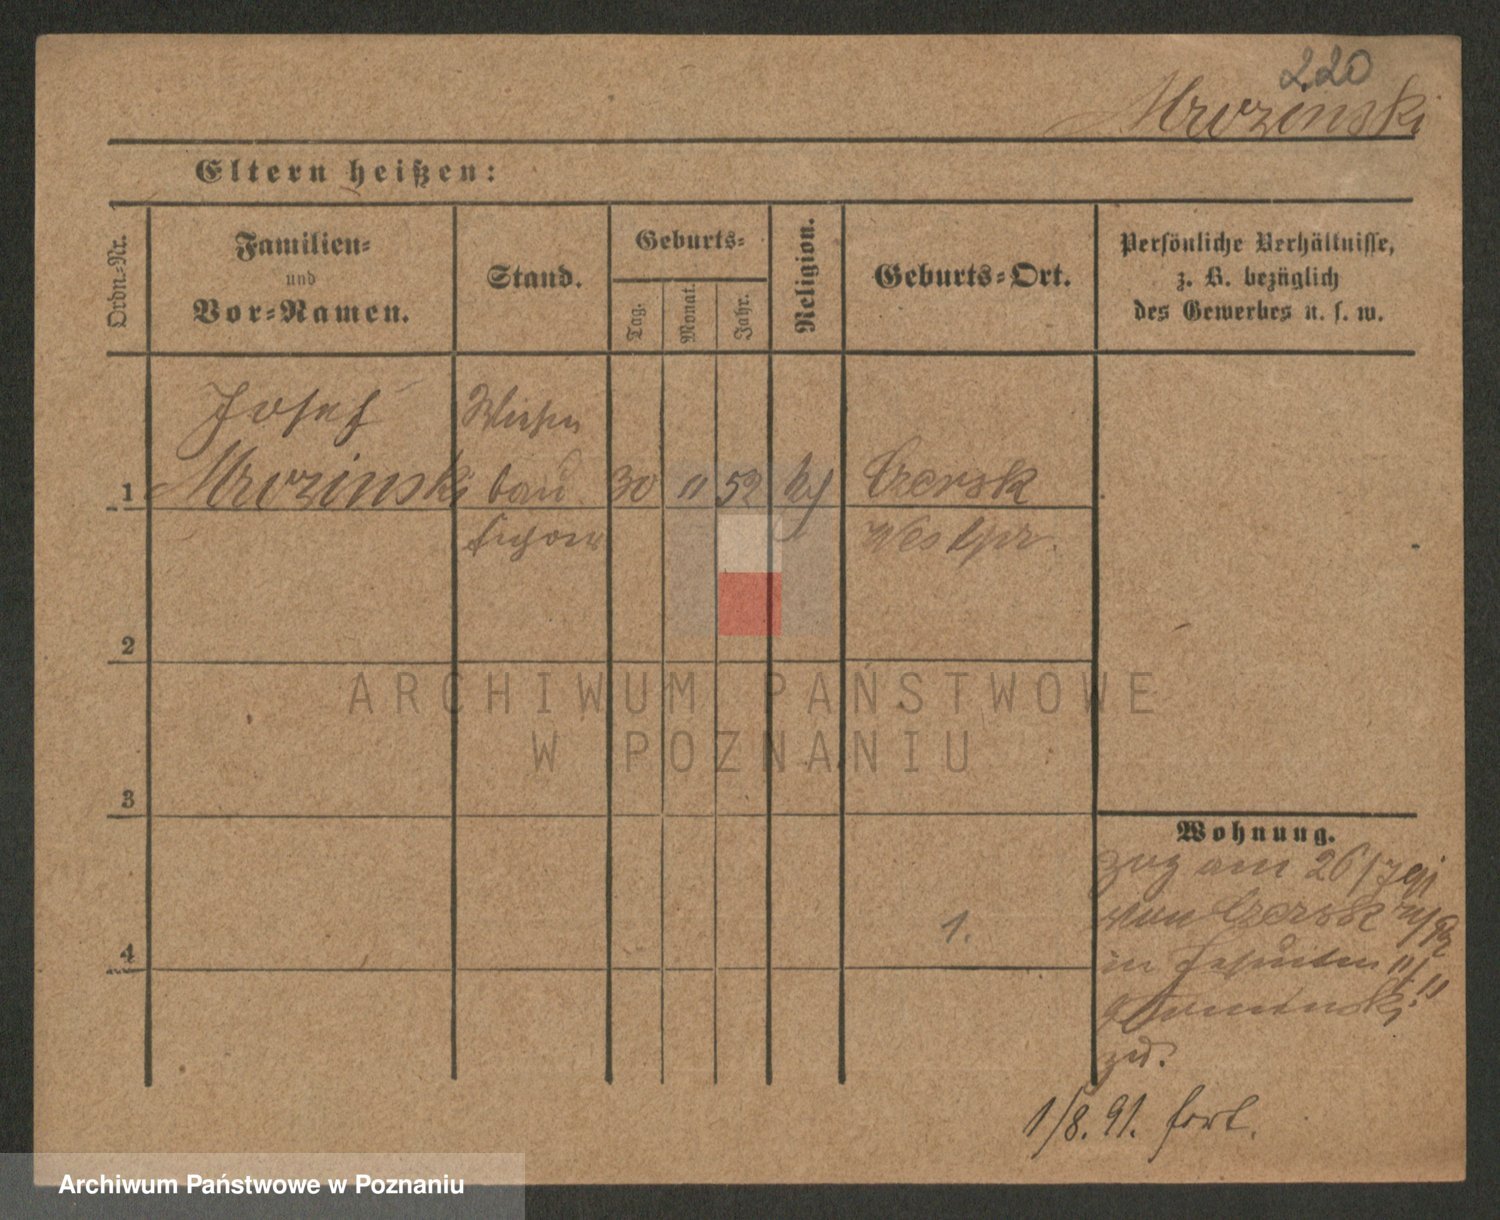 220
Mrozinski
Eltern heißen:
Ordn.-Nr.
Familien-
und
Vor-Namen.
Stand.
Geburts-
Tag.
Monat.
Jahr.
Religion.
Geburts-Ort.
Persönliche Verhältnisse,
z. B. bezüglich
des Gewerbes u. s. w.
Josef
Wiesen
1 Mrozinski bau 30 11 52 Czersk
Westpr.
2
ARCHIWUM PAŃSTWOWE
W POZNANIU
3
Wohnung.
zog am 26/7 91
von Czersk
1.
4
in Jesuiten 11
Kominski
zu.
1/8. 91. fort.
Archiwum Państwowe w Poznaniu